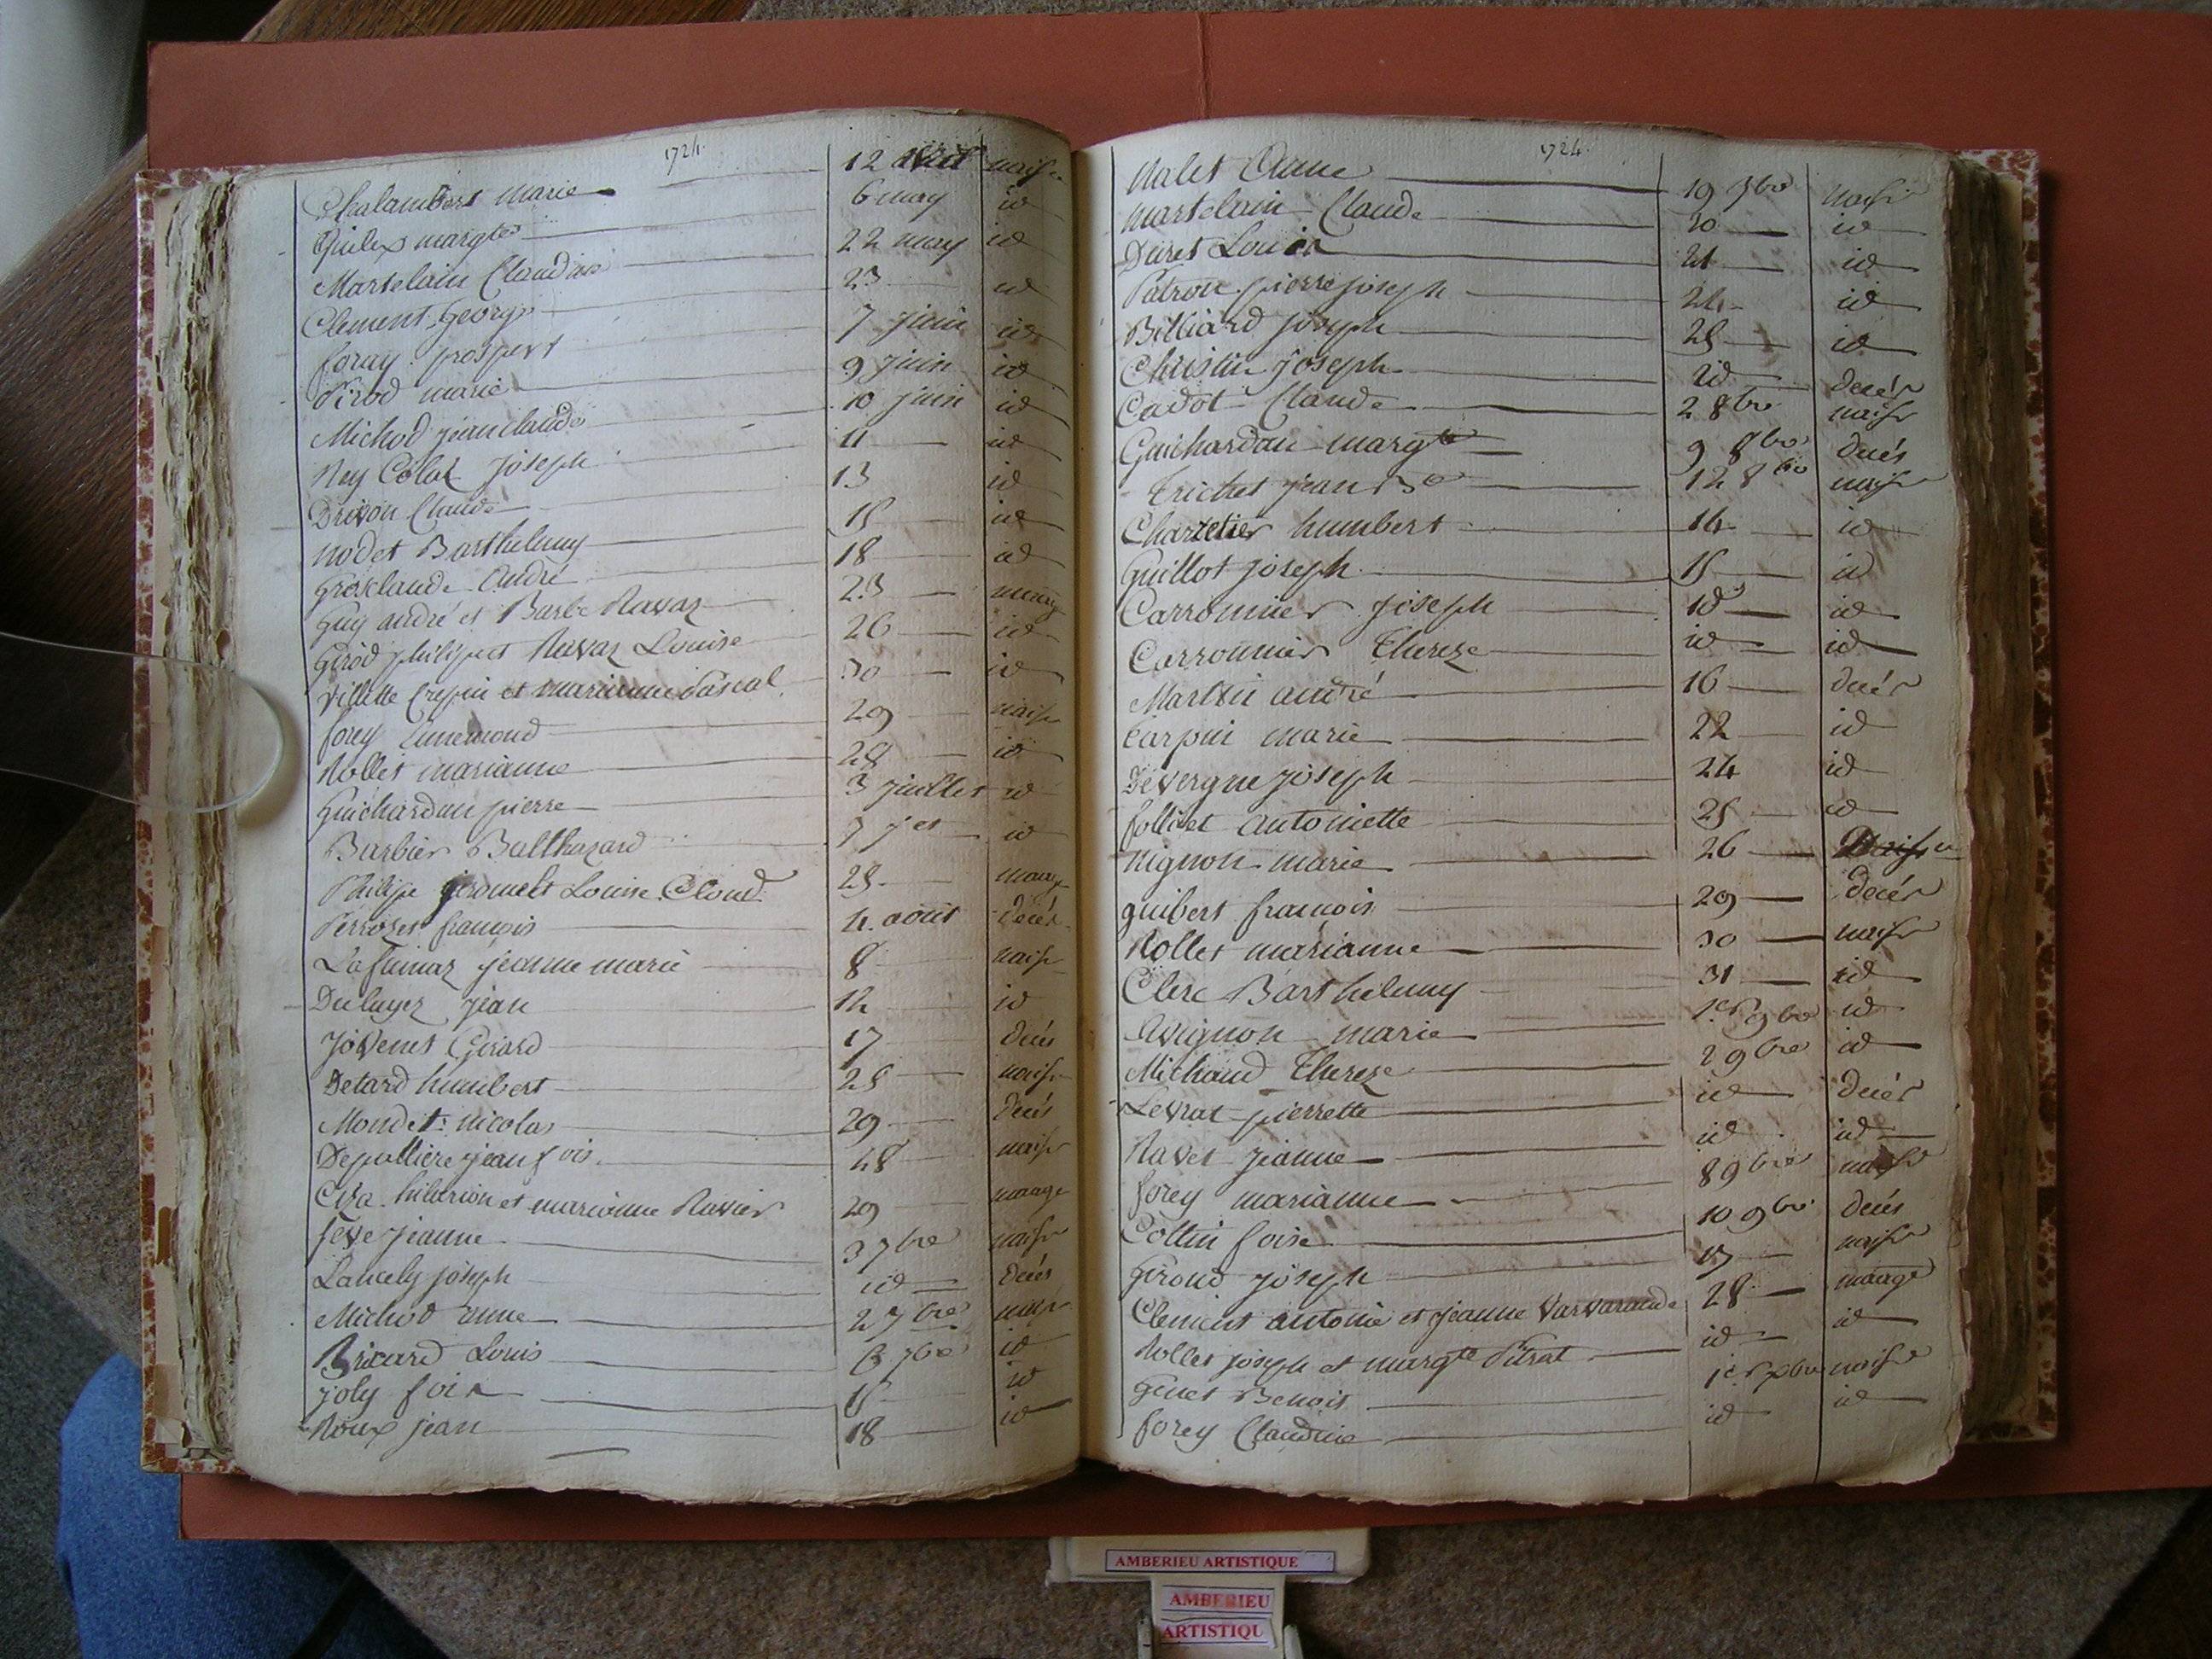 1724.
Chalambert marie 12 avril naiss
margte 6 may id
Martelain Claudine 22 may id
Clement George 23 id
foray prosper 7 juin id
Pirod marie 9 juin id
Michod jean claude 10 juin id
Ney Colat Joseph 11 id
Drivon Claude 13 id
nodet Barthelemy 15 id
Grosclaude André 18 id
Guy andré et Barbe Ravaz 23 mariag
Girod philipe et Ravaz Louise 26 id
Villette Crepin et marianne Pascal 30 id
forey 29 naiss
Rollet marianne 28 id
Guichardan pierre 3 juillet id
Barbier Balthazard 7 jet id
Philipe et Louise Cloud 25 mariag
Perrozet francois 4. aout Decés
jeanne marie 8 naiss
Delayez jean 14 id
Girard 17 decés
Detard humbert 25 naiss
Mondet nicolas 29 decés
Depalliere jean fois 28 naiss
hilarion et marianne Ravier 29 mariage
feve jeanne 3 7bre naiss
Lancely joseph id decés
Michod anne 2 7bre naiss
Bricard Louis 6 7bre id
Joly fois 15 id
Roux jean 18 id
1724.
Nalet Anne 19 7bre naiss
martelain Claude 20 id
Duret Louis 21 id
Patron pierre joseph 24 id
Billiard joseph 25 id
Christin joseph id decés
Cadot Claude 2 8bre naiss
Guichardan margte 9 8bre decés
Trichet jean Bte 12 8bre naiss
Charretier humbert 14 id
Guillot joseph 15 id
Carronnier joseph id id
Carronnier Thereze id id
Martin andré 16 decés
Carpin marie 22 id
Devergne joseph 24 id
folliet antoinette 25 id
nignon marie 26
guibert francois 29 decés
Rollet marianne 30 naiss
Clerc Barthelemy 31 id
Avignon marie 1er 9bre id
Michaud Thereze 2 9bre id
Levrat pierrette id decés
Ravet jeanne id id
forey marianne 8 9bre naiss
Collin foise 10 9bre decés
Giroud joseph 17 naiss
Clement antoine et jeanne Varvarande 28 mariage
Rollet joseph et margte Pitrat id id
Genet Benoit 1er xbre naiss
forey Claudine id id
AMBERIEU ARTISTIQUE
AMBERIEU
ARTISTIQU